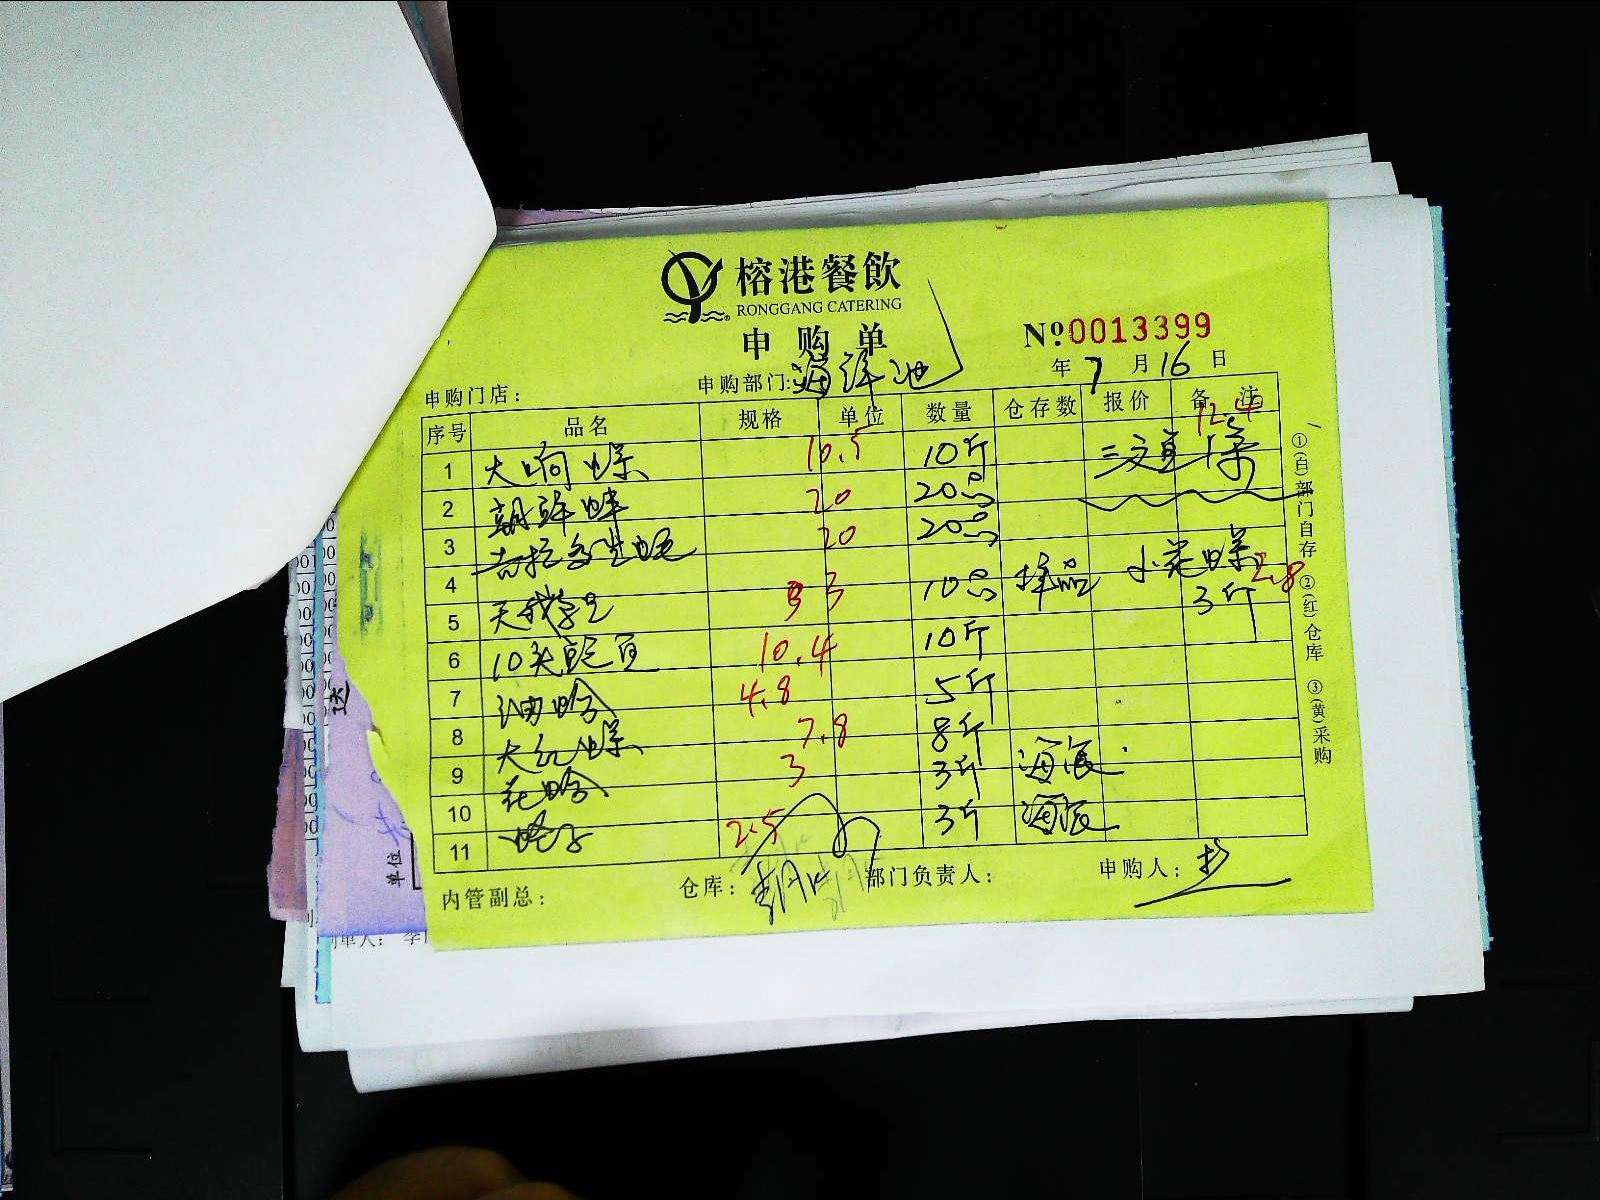 榕港餐飲
RONGGANG CATERING
申购单
No 0013399
年 7 月 16 日
申购门店： 申购部门: 海洋池
序号 品名 规格 单位 数量 仓存数 报价 备注
12.4
1 大响螺 10.5 10斤 三文鱼1条
2 朝鲜蚌 20 20只
3 吉拉多生蚝 20 20只
4 小花螺 2.8
3斤
5 天鹅 3 10只 择品
6 10头鲍鱼 10.4 10斤
7 油蛤 4.8 5斤
8 大红螺 7.8 8斤
9 花蛤 3 3斤 海辰
10 蛏子 2.5 3斤 海辰
11
内管副总： 仓库： 部门负责人： 申购人：
①(白)部门自存 ②(红)仓库 ③(黄)采购
单位